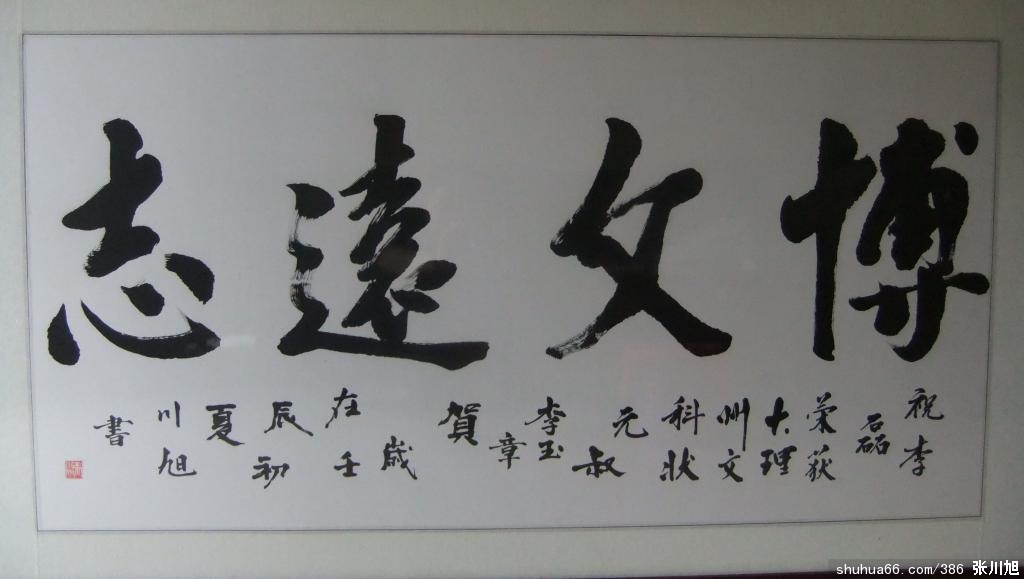 博文遠志
祝李
磊
荣获
大理
州文
科状
元
叔
李玉
章
賀
歲
在壬
辰初
夏
川旭
書
shuhua66.com/386 张川旭